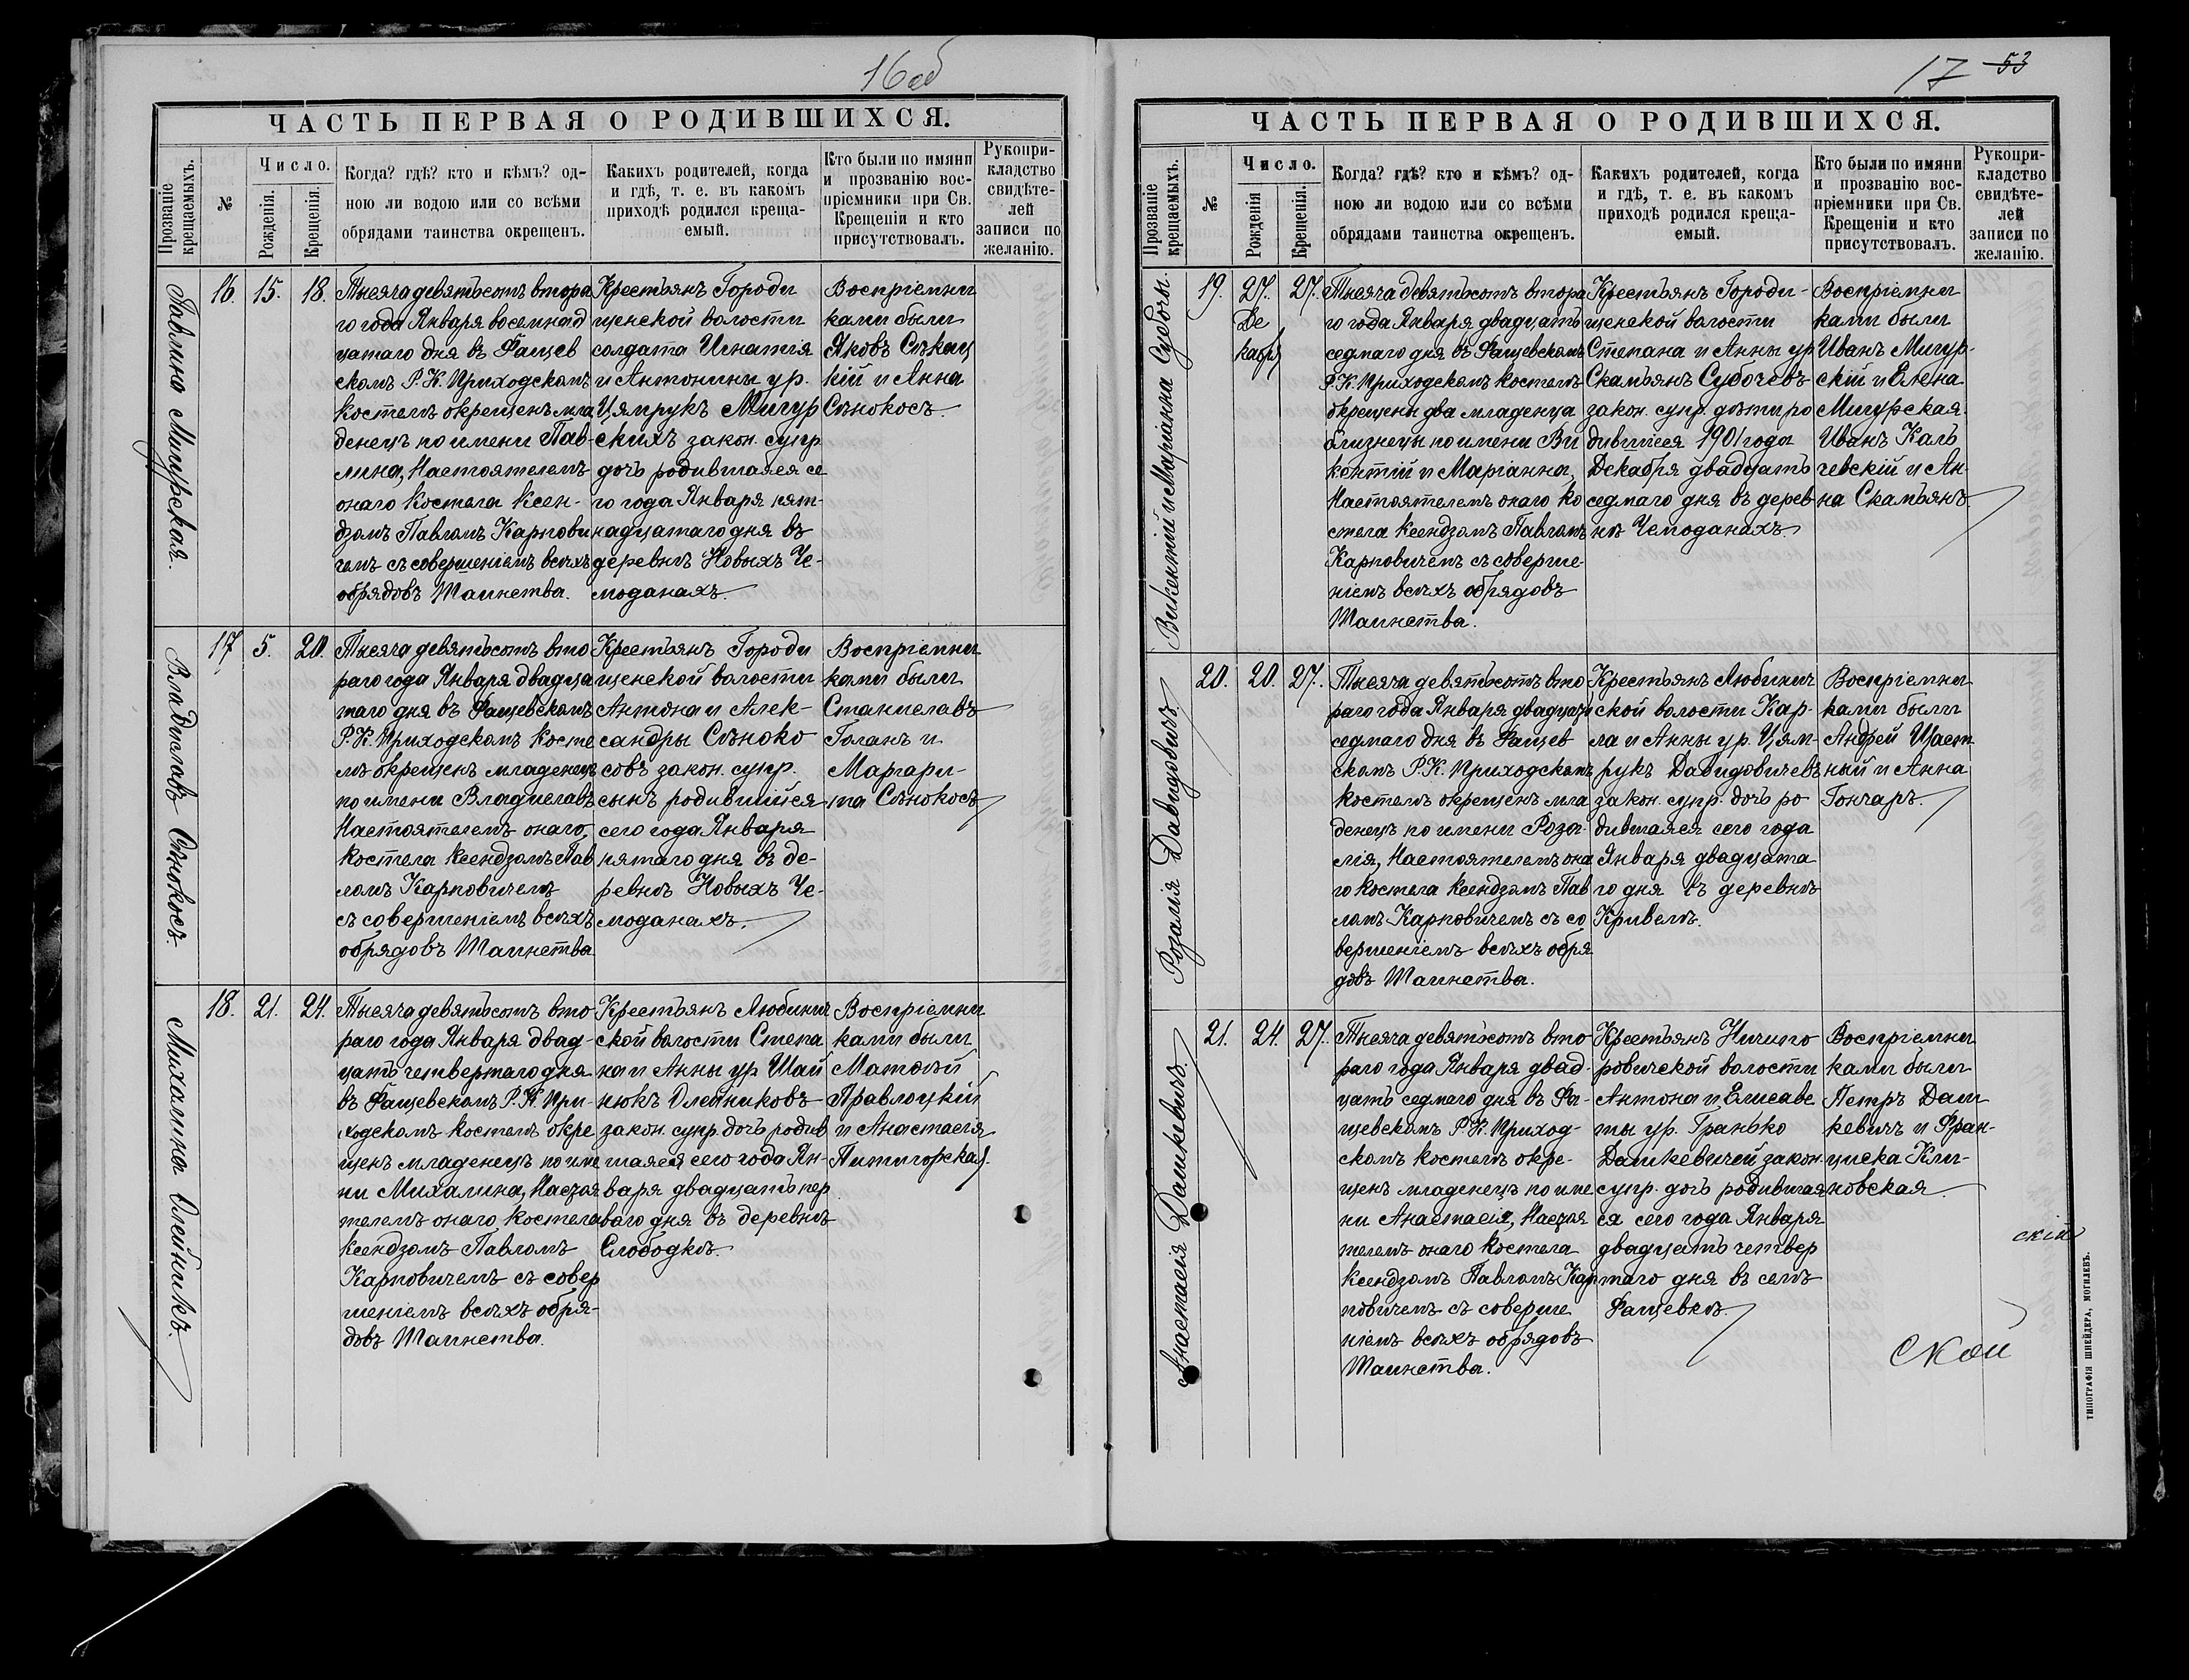 16 об
ЧАСТЬ ПЕРВАЯ О РОДИВШИХСЯ.
Прозваніе крещаемыхъ.
№
Число.
Рожденія.
Крещенія.
Когда? гдѣ? кто и кѣмъ? од-
ною ли водою или со всѣми
обрядами таинства окрещенъ.
Какихъ родителей, когда
и гдѣ, т. е. въ какомъ
приходѣ родился креща-
емый.
Кто были по имяни
и прозванію вос-
пріемники при Св.
Крещеніи и кто
присутствовалъ.
Рукопри-
кладство
свидѣте-
лей
записи по
желанію.
Павлина Мигурская.
16.
15.
18.
Тысяча девятьсотъ втора
го года Января восемнад
цатаго дня въ Фащев
скомъ Р. К. Приходскомъ
костелѣ окрещенъ мла
денецъ по имени Пав-
лина, Настоятелемъ
онаго костела Ксен-
дзомъ Павломъ Карпови
чемъ съ совершеніемъ всѣхъ
обрядовъ Таинства.
Крестьянъ Городи
щенской волости
солдата Игнатія
и Антонины ур.
Цямрукъ Мигур
скихъ закон. супр.
дочь родившаяся се
го года Января пят-
надцатаго дня въ
деревнѣ Новыхъ Че-
моданахъ.
Воспріемни
ками были
Яковъ Сѣкац
кій и Анна
Сѣнокосъ.
Владиславъ Сѣнокосъ.
17
5.
20.
Тысяча девятьсотъ вто
раго года Января двадца
таго дня въ Фащевскомъ
Р. К. Приходскомъ косте
лѣ окрещенъ младенецъ
по имени Владиславъ
Настоятелемъ онаго
костела Ксендзомъ Пав
ломъ Карповичемъ
съ совершеніемъ всѣхъ
обрядовъ Таинства
Крестьянъ Городи
щенской волости
Антона и Алек-
сандры Сѣноко
совъ закон. супр.
сынъ родившійся
сего года Января
пятаго дня въ де-
ревнѣ Новыхъ Че-
моданахъ.
Воспріемни
ками были
Станиславъ
Голанъ и
Маргари-
та Сѣнокосъ
Михалина Олейникъ.
18.
21.
24.
Тысяча девятьсотъ вто
раго года Января двад-
цать четвертаго дня
въ Фащевскомъ Р. К. При-
ходскомъ костелѣ окре
щенъ младенецъ по име
ни Михалина, Настоя
телемъ онаго костела
Ксендзомъ Павломъ
Карповичемъ съ совер
шеніемъ всѣхъ обря-
довъ Таинства.
Крестьянъ Любинич
ской волости Степа
на и Анны ур. Шай
нюкъ Олейниковъ
закон. супр. дочь родив
шаяся сего года Ян-
варя двадцать пер
ваго дня въ деревнѣ
Слободкѣ.
Воспріемни
ками были
Матѳѣй
Правлоцкій
и Анастасія
Питигорская.
17 53
ЧАСТЬ ПЕРВАЯ О РОДИВШИХСЯ.
Прозваніе крещаемыхъ.
№
Число.
Рожденія
Крещенія.
Когда? гдѣ? кто и кѣмъ? од-
ною ли водою или со всѣми
обрядами таинства окрещенъ.
Какихъ родителей, когда
и гдѣ, т. е. въ какомъ
приходѣ родился креща-
емый.
Кто были по имяни
и прозванію вос-
пріемники при Св.
Крещеніи и кто
присутствовалъ.
Рукопри-
кладство
свидѣте-
лей
записи по
желанію.
Викентій и Маріанна Субочы.
19.
27.
Де
кабря
27.
Тысяча девятьсотъ втора
го года Января двадцать
седмаго дня въ Фащевскомъ
Р. К. Приходскомъ костелѣ
окрещены два младенца
близнецы по имени Ви
кентій и Маріанна,
Настоятелемъ онаго ко
стела Ксендзомъ Павломъ
Карповичемъ съ соверше-
ніемъ всѣхъ обрядовъ
Таинства.
Крестьянъ Городи-
щенской волости
Степана и Анны ур
Скамьянъ Субочевъ
закон. супр. дѣти ро
дившіеся 1901 года
Декабря двадцать
седмаго дня въ дерев
нѣ Чемоданахъ.
Воспріемни
ками были
Иванъ Мигур-
скій и Елена
Мигурская.
Иванъ Каль
чевскій и Ан-
на Скамьянъ.
Розалія Давидовичъ.
20.
20.
27.
Тысяча девятьсотъ вто
раго года Января двадцать
седмаго дня въ Фащев
скомъ Р. К. Приходскомъ
костелѣ окрещенъ мла
денецъ по имени Роза-
лія, Настоятелемъ она
го костела Ксендзомъ Пав
ломъ Карповичемъ съ со
вершеніемъ всѣхъ обря
довъ Таинства.
Крестьянъ Любинич
ской волости Кар-
ла и Анны ур. Цям-
рукъ Давидовичевъ
закон. супр. дочь ро
дившаяся сего года
Января двадцата
го дня въ деревнѣ
Кривелѣ.
Воспріемни
ками были
Андрей Щаст
ный и Анна
Гончаръ.
Анастасія Дашкевичъ.
21.
24.
27.
Тысяча девятьсотъ вто
раго года Января двад-
цать седмаго дня въ Фа-
щевскомъ Р. К. Приход-
скомъ костелѣ окре-
щенъ младенецъ по име
ни Анастасія, Настоя
телемъ онаго костела
Ксендзомъ Павломъ Кар
повичемъ съ соверше
ніемъ всѣхъ обрядовъ
Таинства.
Крестьянъ Ничипо
ровичской волости
Антона и Елисаве
ты ур. Гранько
Дашкевичей закон.
супр. дочь родившая
ся сего года Января
двадцать четвер
таго дня въ селѣ
Фащевкѣ.
Воспріемни
ками были
Петръ Даш
кевичъ и Фран-
циска Кли-
новская.
скій
ской
ТИПОГРАФІЯ ШНЕЙДЕРА, МОГИЛЕВЪ.